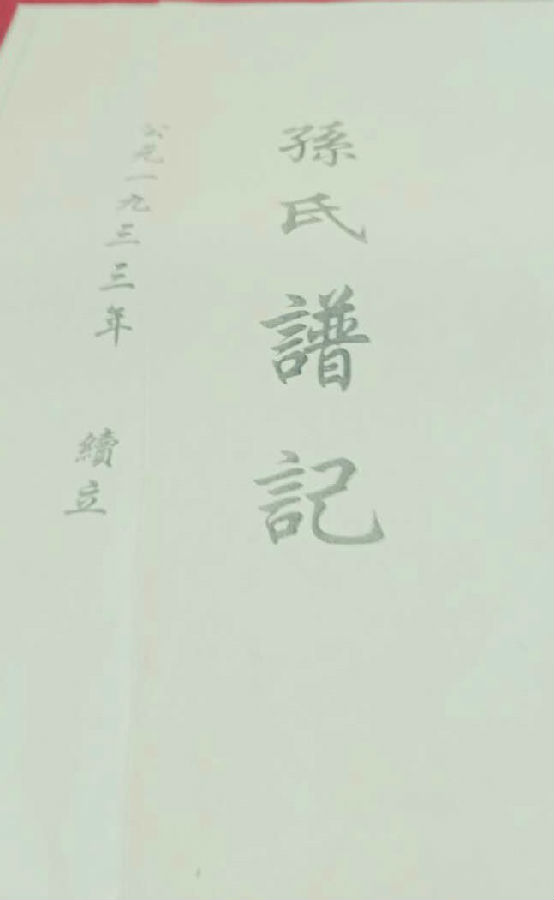 孫氏譜記
公元一九三三年 續立